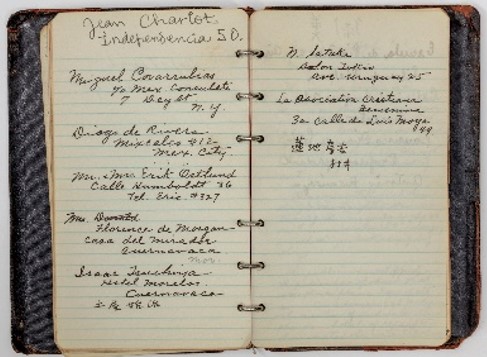 Jean Charlot
Independencia 50.
Miguel Covarrubias
℅ Mex Consulate
7 Dey St
N.Y.
Diego de Rivera
Mixcalco #12
Mex. City.
Mr. & Mrs. Erik Ostlund
Calle Humboldt 36
Tel. Eric #327
Mrs.
Florence de Morgan
Casa del Mirador
Cuernavaca
Mor.
Isaac
Hotel Morelos
Cuernavaca
N.
Salon Tokio
Ave. Uruguay 25
La Asociación Cristiana
Femenina
3a Calle de Luis Moya